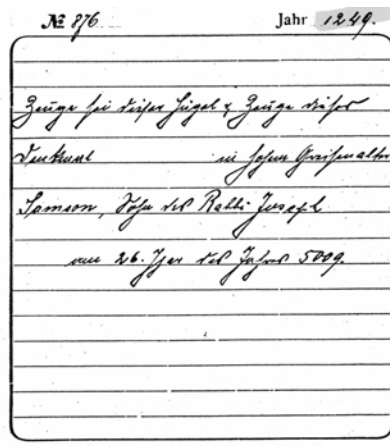 № 876 Jahr 1249.
Zeuge sei dieser Hügel & Zeuge dieses
Denkmal in hohem Greisenalter
Samson, Sohn des Rabbi Joseph
am 26. Ijar des Jahres 5009.